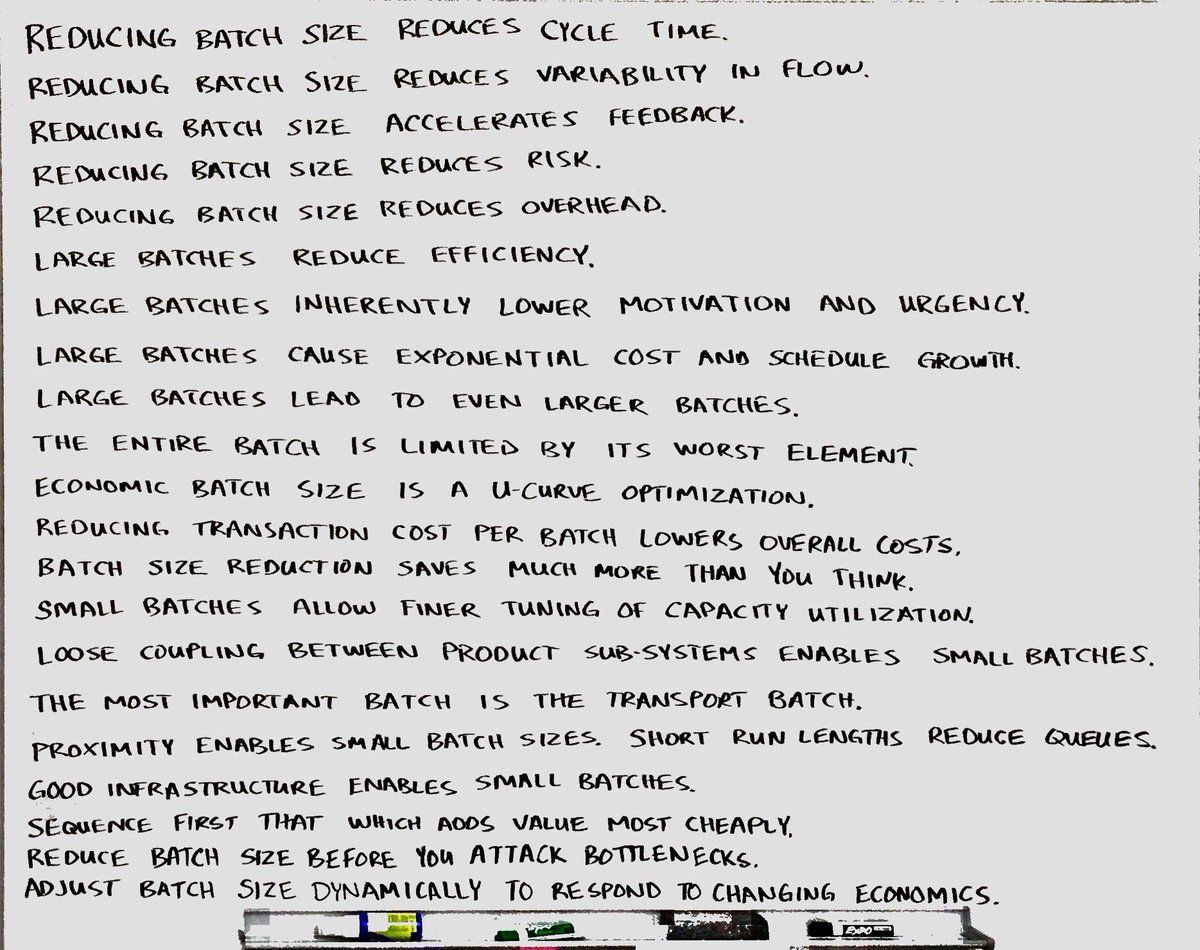 REDUCING BATCH SIZE REDUCES CYCLE TIME.
REDUCING BATCH SIZE REDUCES VARIABILITY IN FLOW.
REDUCING BATCH SIZE ACCELERATES FEEDBACK.
REDUCING BATCH SIZE REDUCES RISK.
REDUCING BATCH SIZE REDUCES OVERHEAD.
LARGE BATCHES REDUCE EFFICIENCY.
LARGE BATCHES INHERENTLY LOWER MOTIVATION AND URGENCY.
LARGE BATCHES CAUSE EXPONENTIAL COST AND SCHEDULE GROWTH.
LARGE BATCHES LEAD TO EVEN LARGER BATCHES.
THE ENTIRE BATCH IS LIMITED BY ITS WORST ELEMENT.
ECONOMIC BATCH SIZE IS A U-CURVE OPTIMIZATION.
REDUCING TRANSACTION COST PER BATCH LOWERS OVERALL COSTS.
BATCH SIZE REDUCTION SAVES MUCH MORE THAN YOU THINK.
SMALL BATCHES ALLOW FINER TUNING OF CAPACITY UTILIZATION.
LOOSE COUPLING BETWEEN PRODUCT SUB-SYSTEMS ENABLES SMALL BATCHES.
THE MOST IMPORTANT BATCH IS THE TRANSPORT BATCH.
PROXIMITY ENABLES SMALL BATCH SIZES. SHORT RUN LENGTHS REDUCE QUEUES.
GOOD INFRASTRUCTURE ENABLES SMALL BATCHES.
SEQUENCE FIRST THAT WHICH ADDS VALUE MOST CHEAPLY.
REDUCE BATCH SIZE BEFORE YOU ATTACK BOTTLENECKS.
ADJUST BATCH SIZE DYNAMICALLY TO RESPOND TO CHANGING ECONOMICS.
EXPO